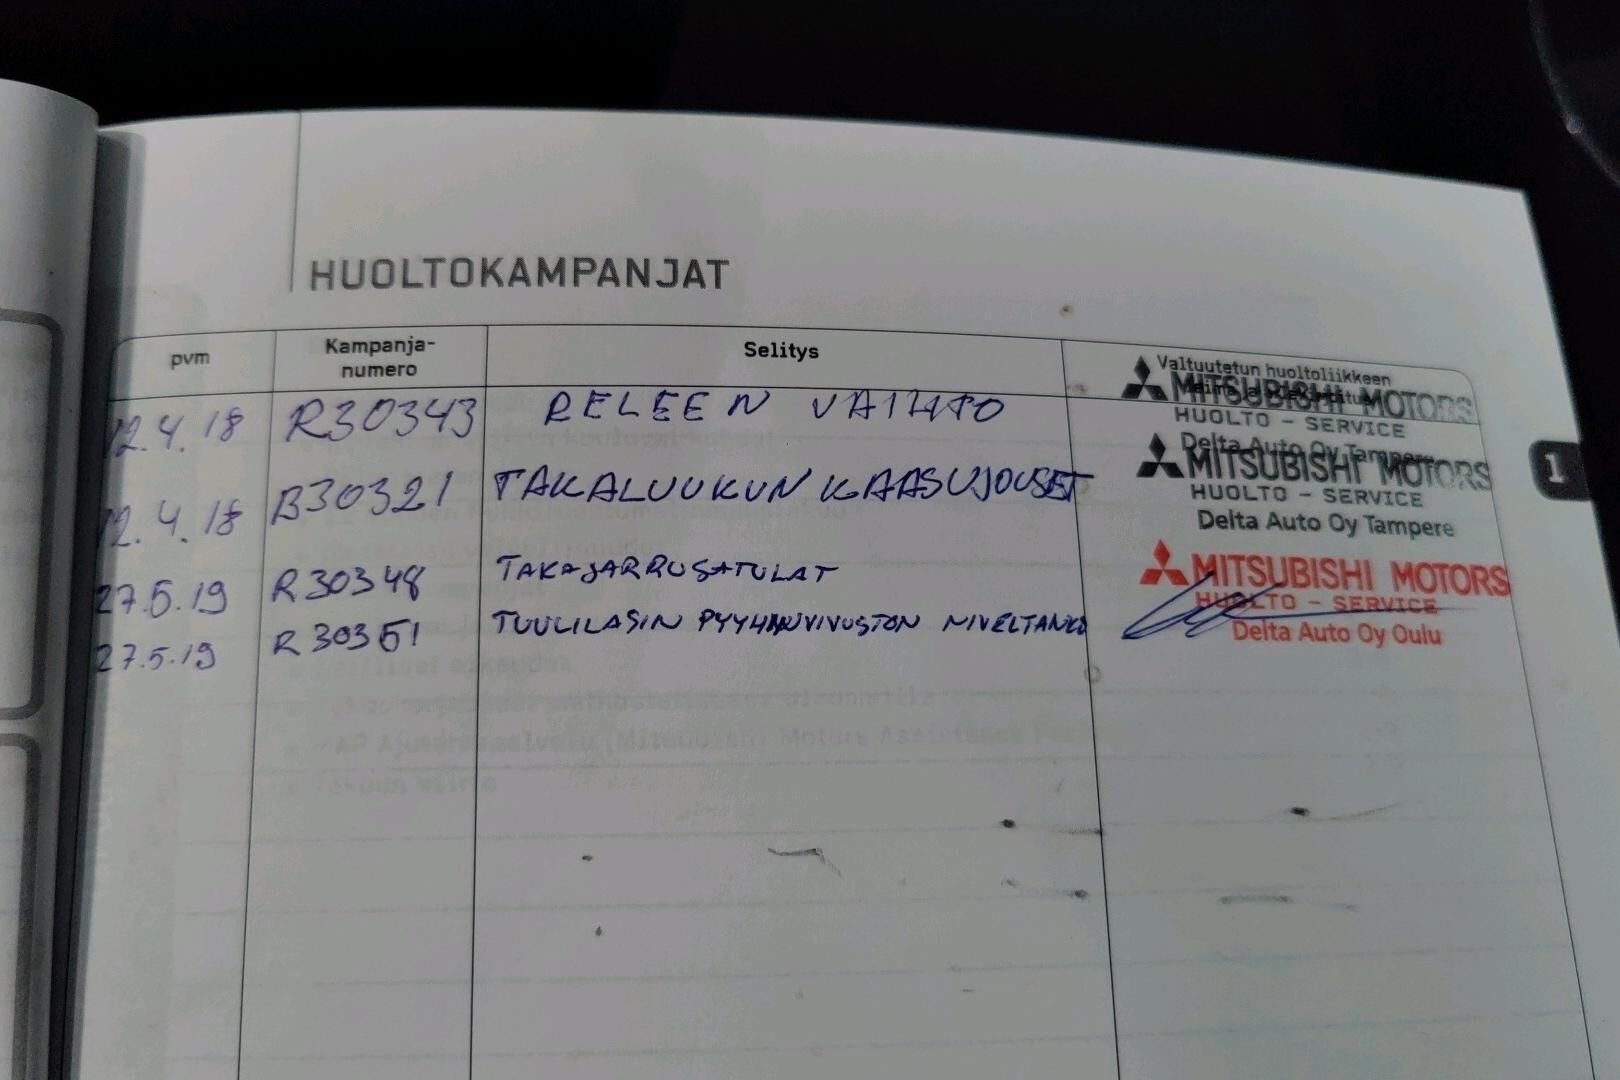 HUOLTOKAMPANJAT
pvm Kampanja-numero Selitys Valtuutetun huoltoliikkeen
12.4.18 R30343 RELEEN VAIHTO MITSUBISHI MOTORS
HUOLTO - SERVICE
Delta Auto Oy Tampere
12.4.18 B30321 TAKALUUKUN KAASUJOUSET MITSUBISHI MOTORS
HUOLTO - SERVICE
Delta Auto Oy Tampere
27.5.19 R30348 TAKAJARRUSATULAT MITSUBISHI MOTORS
HUOLTO - SERVICE
27.5.19 R30351 TUULILASIN PYYHINVIVUSTON NIVELTANKO Delta Auto Oy Oulu
1